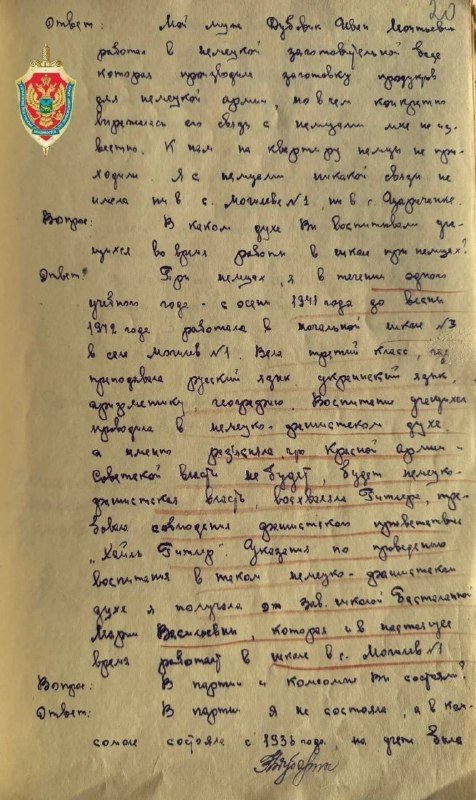 20
Ответ: Мой муж Дубовик Иван Леонтьевич
работал в немецкой заготовительной базе
которая производила заготовку продуктов
для немецкой армии, но в чем конкретно
выражалась его связь с немцами мне не из-
вестно. К нам на квартиру немцы не при-
ходили. Я с немцами никакой связи не
имела ни в с. Могилеве №1 ни в с. Царичанке.
Вопрос: В каком духе Вы воспитывали уча-
щихся во время работы в школе при немцах?
Ответ: При немцах, я в течении одного
учебного года - с осени 1941 года до весны
1942 года работала в начальной школе №3
в селе Могилев №1. Вела третий класс, где
преподавала русский язык украинский язык,
арифметику, географию. Воспитание учащихся
проводила в немецко-фашистском духе,
а именно разъясняла, что Красной армии -
Советской власти не будет, будет немецко-
фашистская власть, восхваляла Гитлера, тре-
бовала соблюдения фашистского приветствия
"Хайль Гитлер". Указания по проведению
воспитания в таком немецко-фашистском
духе я получала от зав. школой Басталенной
Марии Васильевны, которая и в настоящее
время работает в школе в с. Могилев №1
Вопрос: В партии и комсомоле Вы состояли?
Ответ: В партии я не состояла, а в ком-
сомоле состояла с 1936 года, на учете была